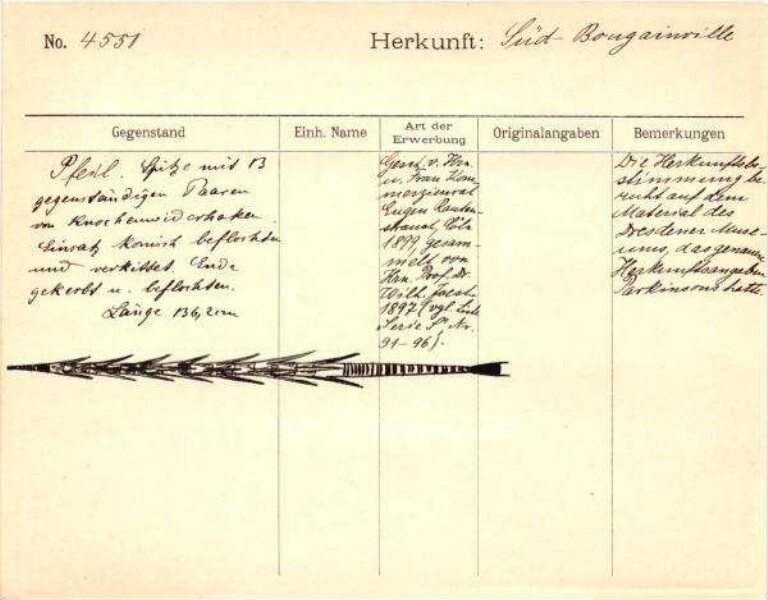 No. 4551
Herkunft: Süd-Bougainville
Gegenstand
Einh. Name
Art der Erwerbung
Originalangaben
Bemerkungen
Pfeil. Spitze mit 13
gegenständigen Paaren
von Knochenwiderhaken.
Einsatz konisch beflochten
und verkittet. Ende
gekerbt u. beflochten.
Länge 136,2cm
Gesch. v. Hrn.
u. Frau Kom-
merzienrat
Eugen Rauten-
strauch, Cöln
1899, gesam-
melt von
Hrn. Prof. Dr.
Wilh. Joest
1897 (vgl. Liste
Serie S. Nr.
91-96).
Die Herkunftsbe-
stimmung be-
ruht auf dem
Material des
Dresdener Muse-
ums, das genauere
Herkunftsangaben
Parkinsons hatte.